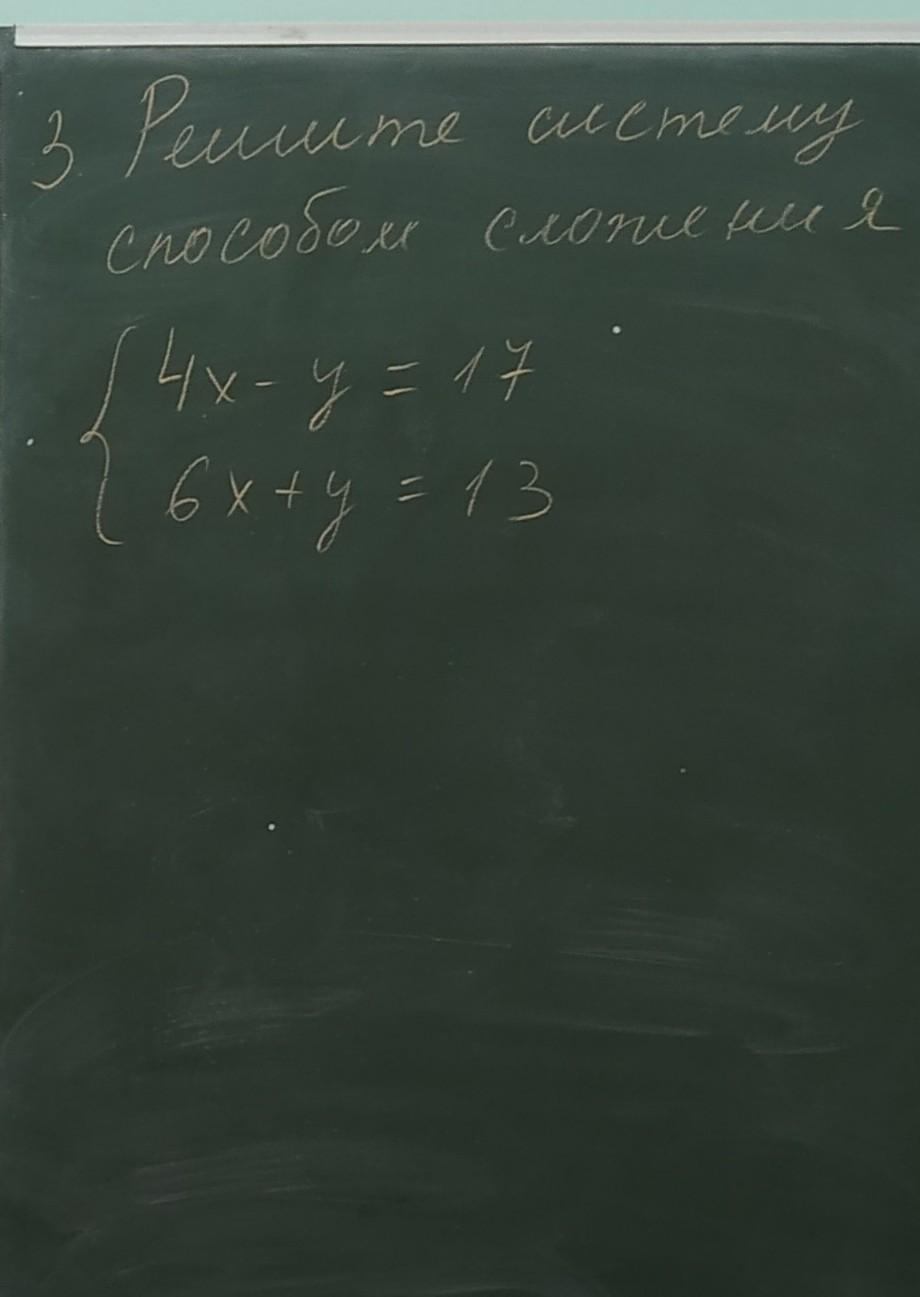 3. Решите систему
способом сложения
4x - y = 17
6x + y = 13